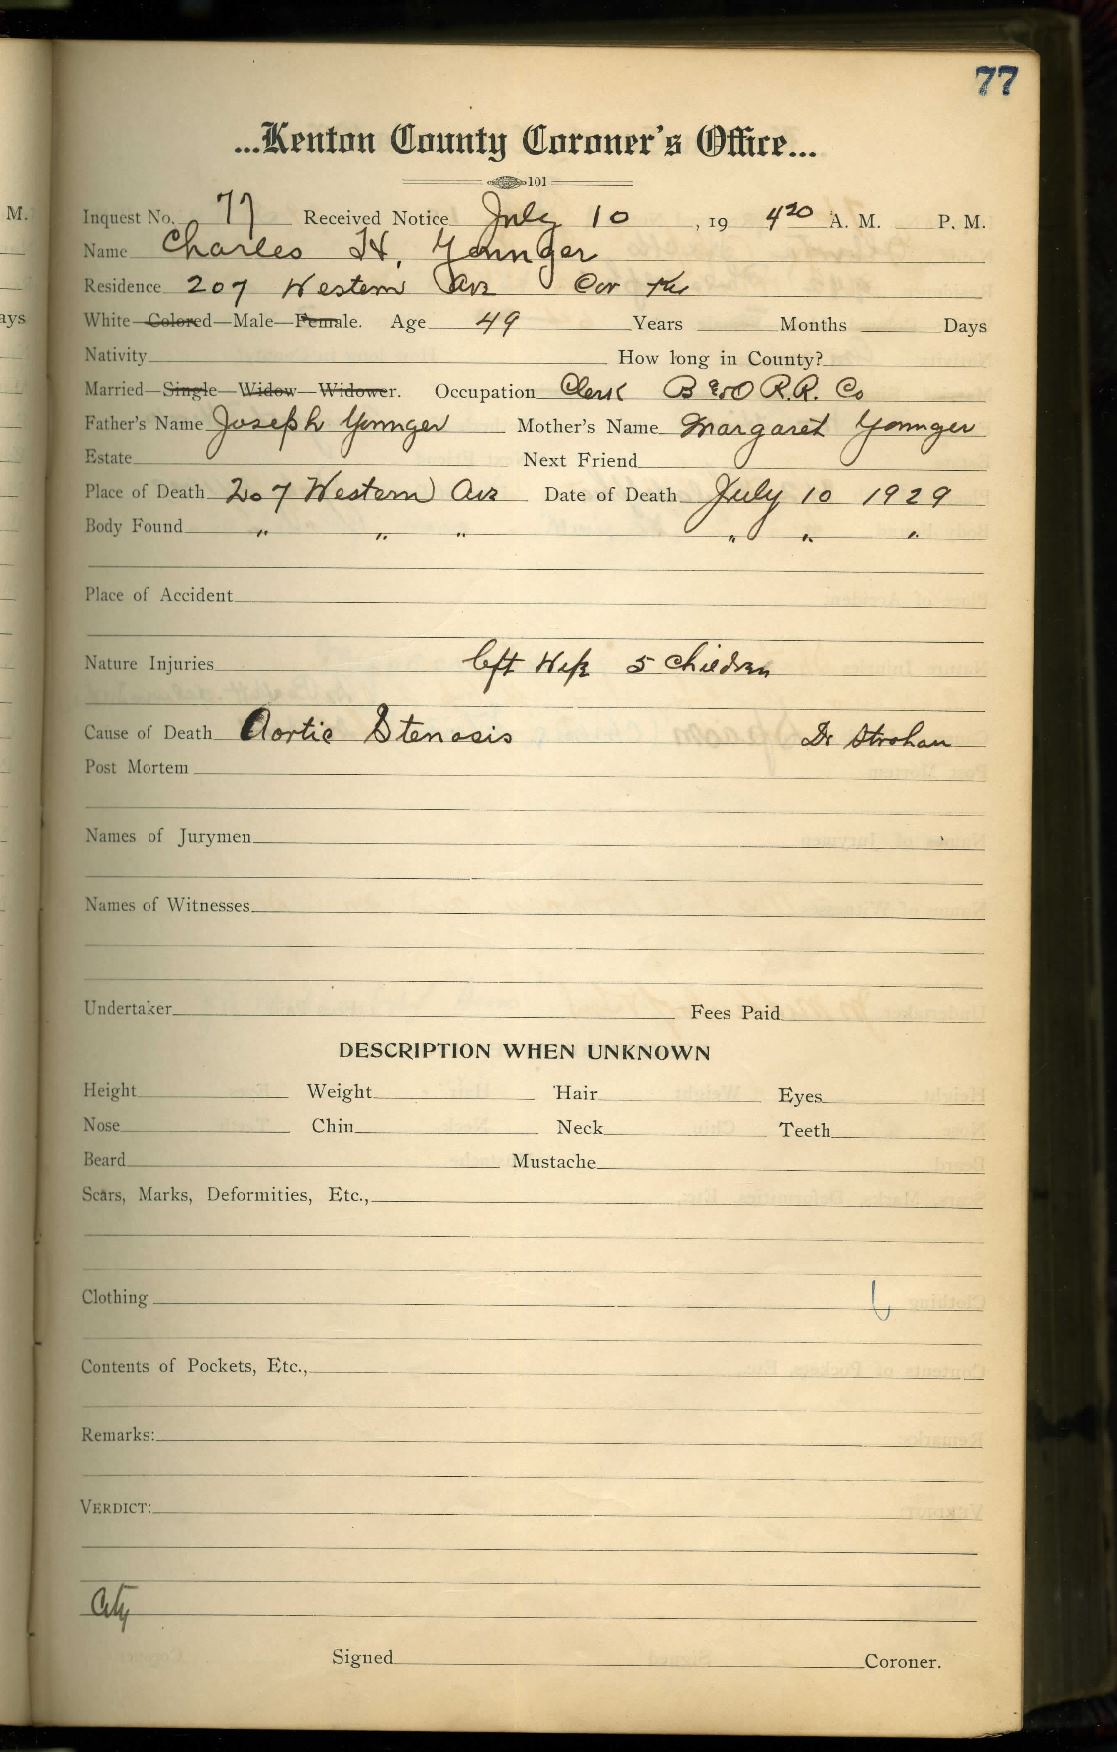 77
...Kenton County Coroner's Office...
101
Inquest No. 77 Received Notice July 10 , 19 4 20 A. M. P. M.
Name Charles H. Younger
Residence 207 Western Ave Cov Ky
White—Colored—Male—Female. Age 49 Years Months Days
Nativity How long in County?
Married—Single—Widow—Widower. Occupation Clerk B & O R.R. Co
Father's Name Joseph Younger Mother's Name Margaret Younger
Estate Next Friend
Place of Death 207 Western Ave Date of Death July 10 1929
Body Found " " " " " "
Place of Accident
Nature Injuries left Wife 5 Children
Cause of Death Aortic Stenosis Dr Strohan
Post Mortem
Names of Jurymen
Names of Witnesses
Undertaker Fees Paid
DESCRIPTION WHEN UNKNOWN
Height Weight Hair Eyes
Nose Chin Neck Teeth
Beard Mustache
Scars, Marks, Deformities, Etc.,
Clothing
Contents of Pockets, Etc.,
Remarks:
VERDICT:
City
Signed Coroner.
M.
ays